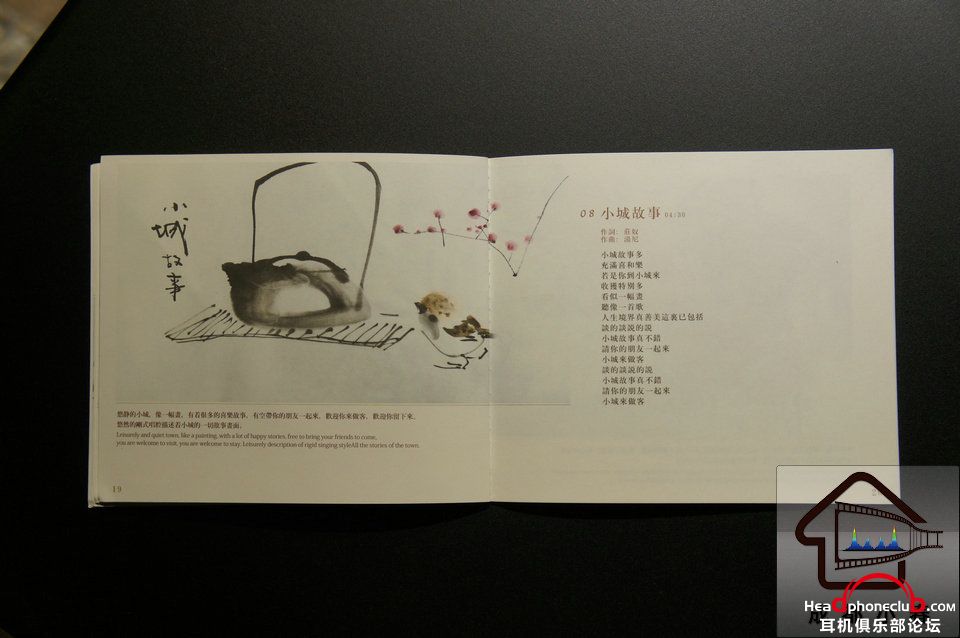 小城
故事
悠静的小城，像一幅畫，有着很多的喜樂故事，有空帶你的朋友一起來，歡迎你來做客，歡迎你留下來。
悠然的剛式唱腔描述着小城的一切故事畫面。
Leisurely and quiet town, like a painting, with a lot of happy stories, free to bring your friends to come,
you are welcome to visit, you are welcome to stay. Leisurely description of rigid singing styleAll the stories of the town.
19
08 小城故事 04:30
作詞：莊奴
作曲：湯尼
小城故事多
充滿喜和樂
若是你到小城來
收獲特別多
看似一幅畫
聽像一首歌
人生境界真善美這裏已包括
談的談說的說
小城故事真不錯
請你的朋友一起來
小城來做客
談的談說的說
小城故事真不錯
請你的朋友一起來
小城來做客
Headphoneclub.com
耳机俱乐部论坛